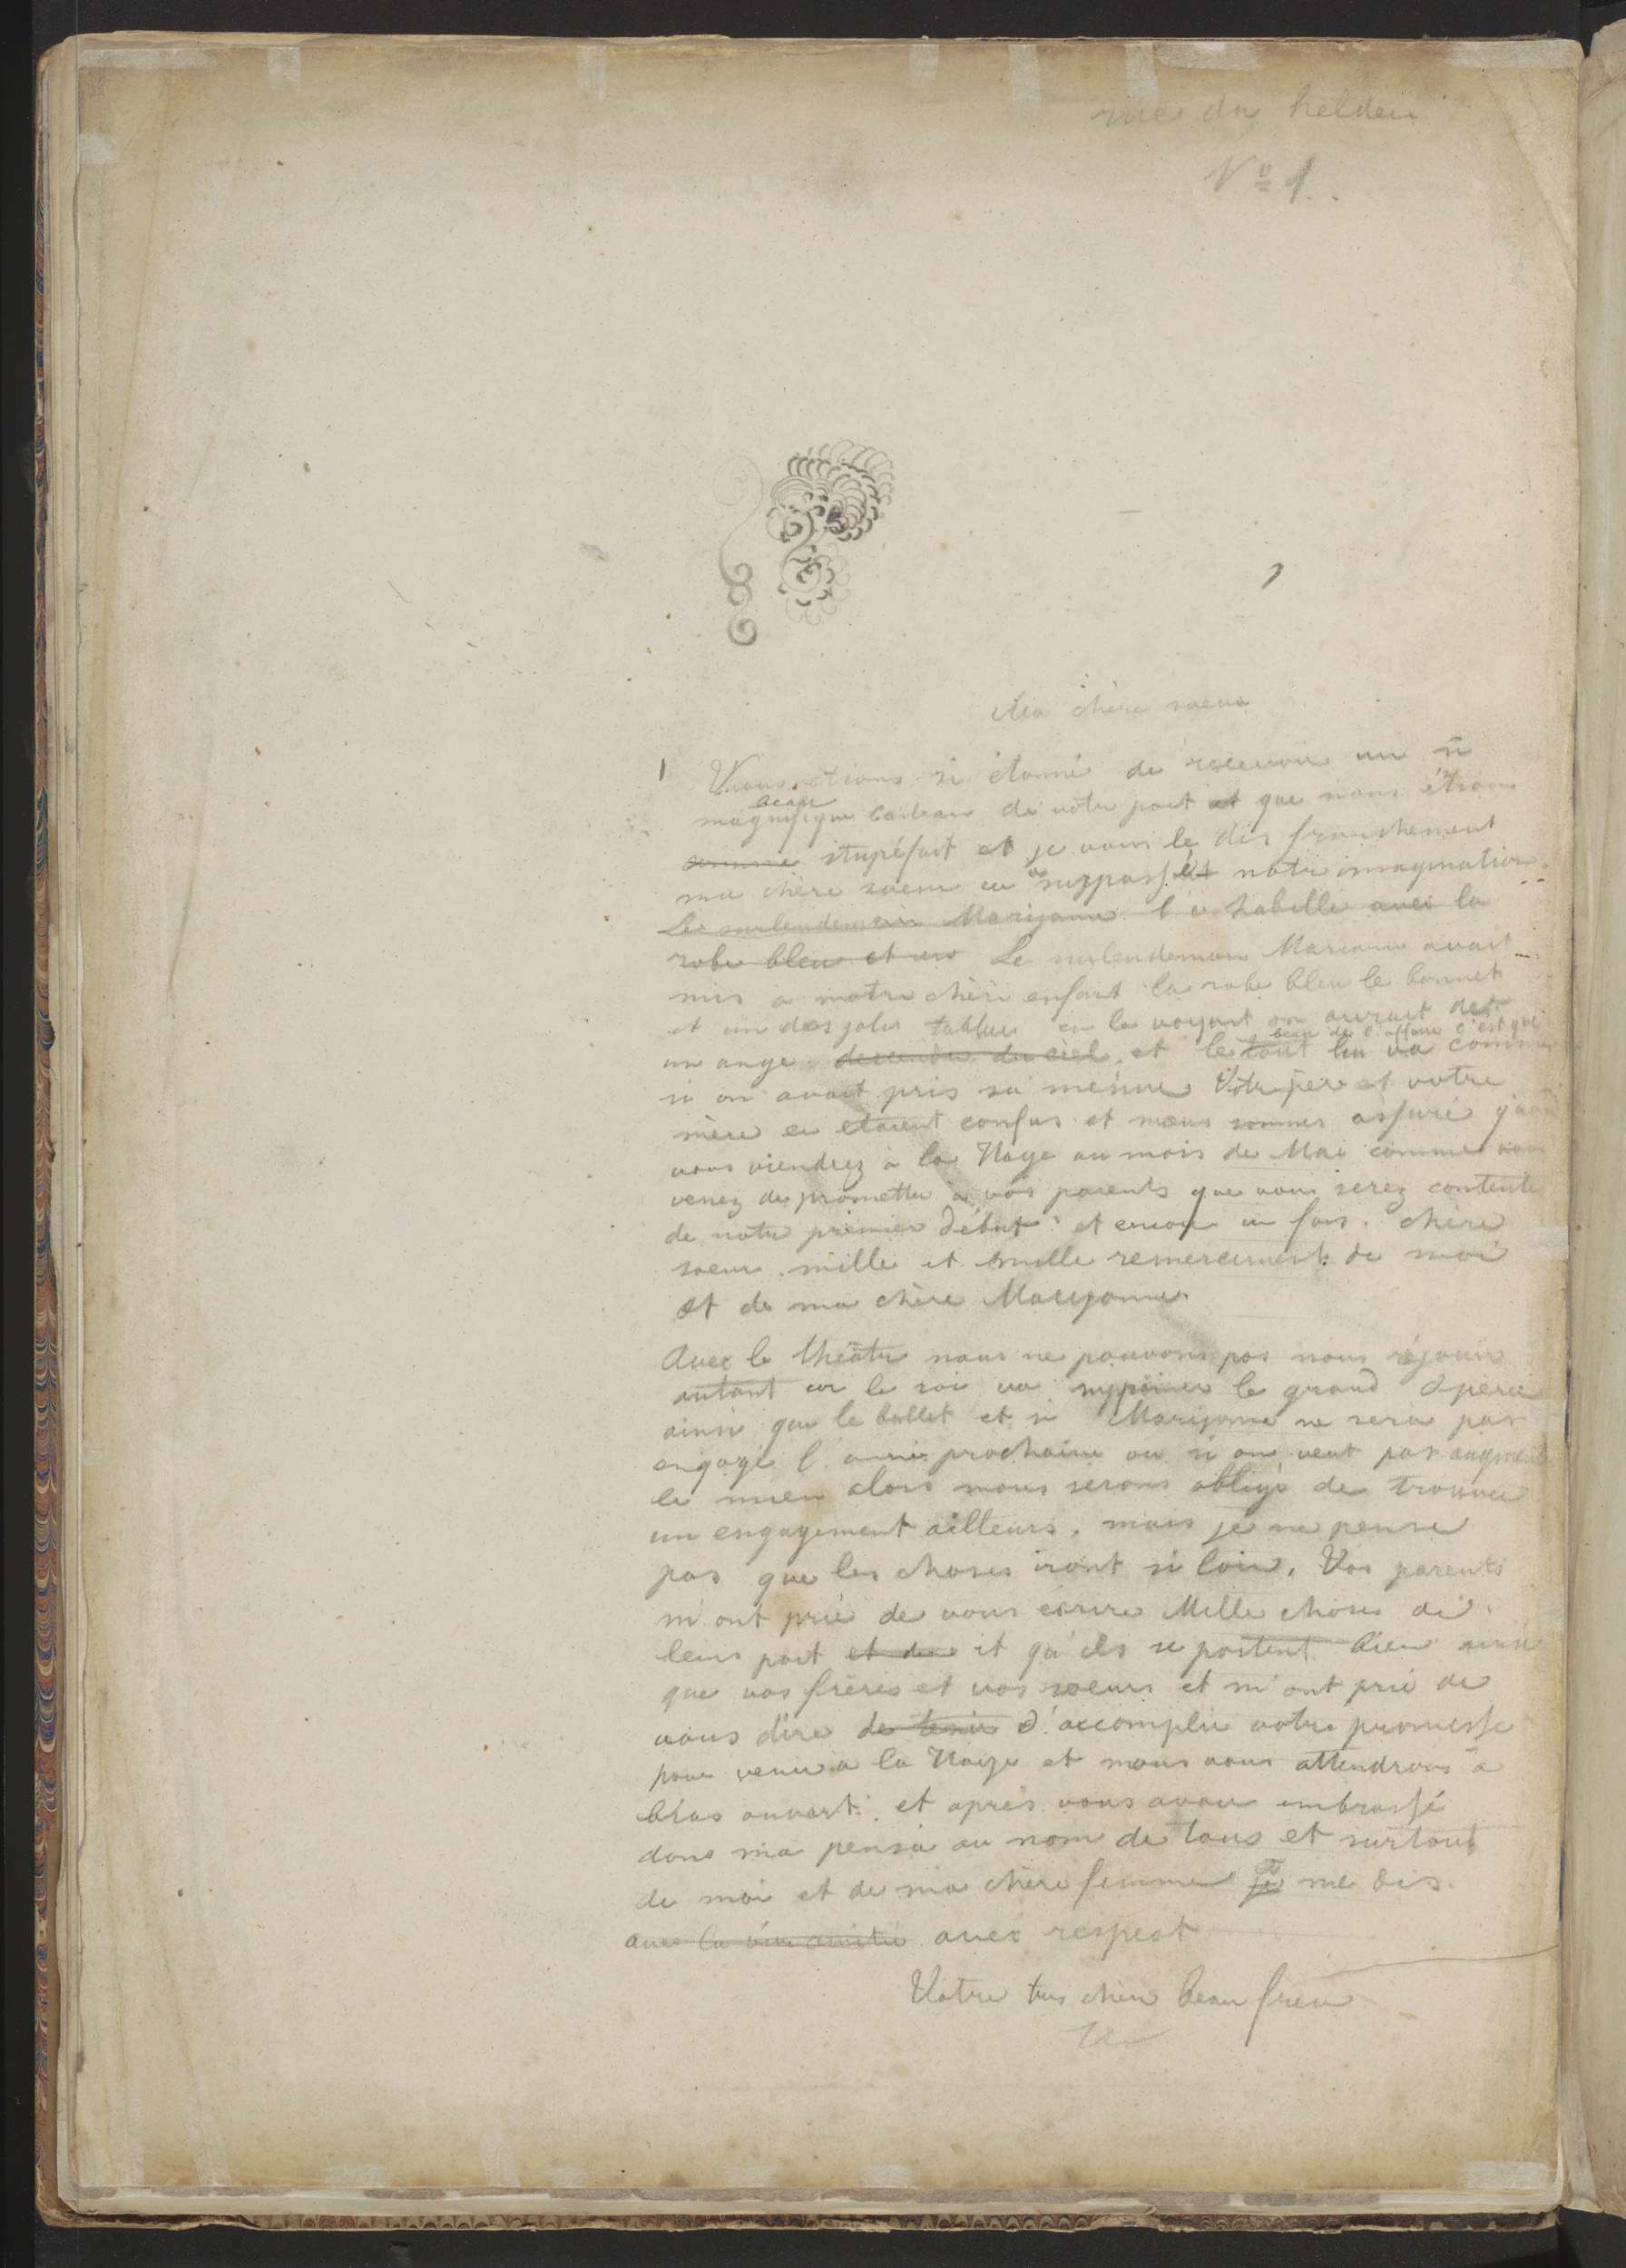 rue du helder
Nº 1.
Ma chère soeur
1 Nous etions si étonné de recevoir un si
beau
magnifique Cadeau de votre part et que nous étions
stupéfait et je vous le dis franchement
ma chère soeur ca surpassé notre imagination.
Le surlendemain Marijanne l'a habillé avec la
robe bleu et Le surlendemain Marianne avait
mis a notre chère enfant la robe bleu le bonnet
et un des jolis en la voyant on aurait det
beau de l'affaire c'est que
un ange descendre du ciel. et le tout lui va comme
si on avait pris sa mesure Votre père et votre
mère en etaient confus et nous sommes assuré
vous viendrez a la Haye au mois de Mai comme vous
venez de promettre a vos parents que vous serez contente
de notre premier début et encore un fois. chère
soeur mille et mille remerciments de moi
et de ma chère Marijanne.
Avec le théâtre nous ne pouvons pas nous réjouir
autant car le roi va supprimer le grand Opera
ainsi que le ballet et si Marijanne ne sera pas
engagé l'année prochaine ou si on veut pas augment
le mien alors nous serons obligé de trouver
un engagement ailleurs, mais je ne pense
pas que les choses iront si loin. Vos parents
m'ont prié de vous écrire Mille choses de
leur part et de et qu'ils se portent bien ainsi
que vos frères et vos soeurs et m'ont prié de
vous dire de tenir d'accomplir votre promesse
pour venir a la Haye et nous vous attendrons a
bras ouvert. et après vous avoir embrassé
dans ma pensée au nom de tous et surtout
de moi et de ma chère femme je me dis.
avec la amitié avec respect
Votre tres chère beau frère